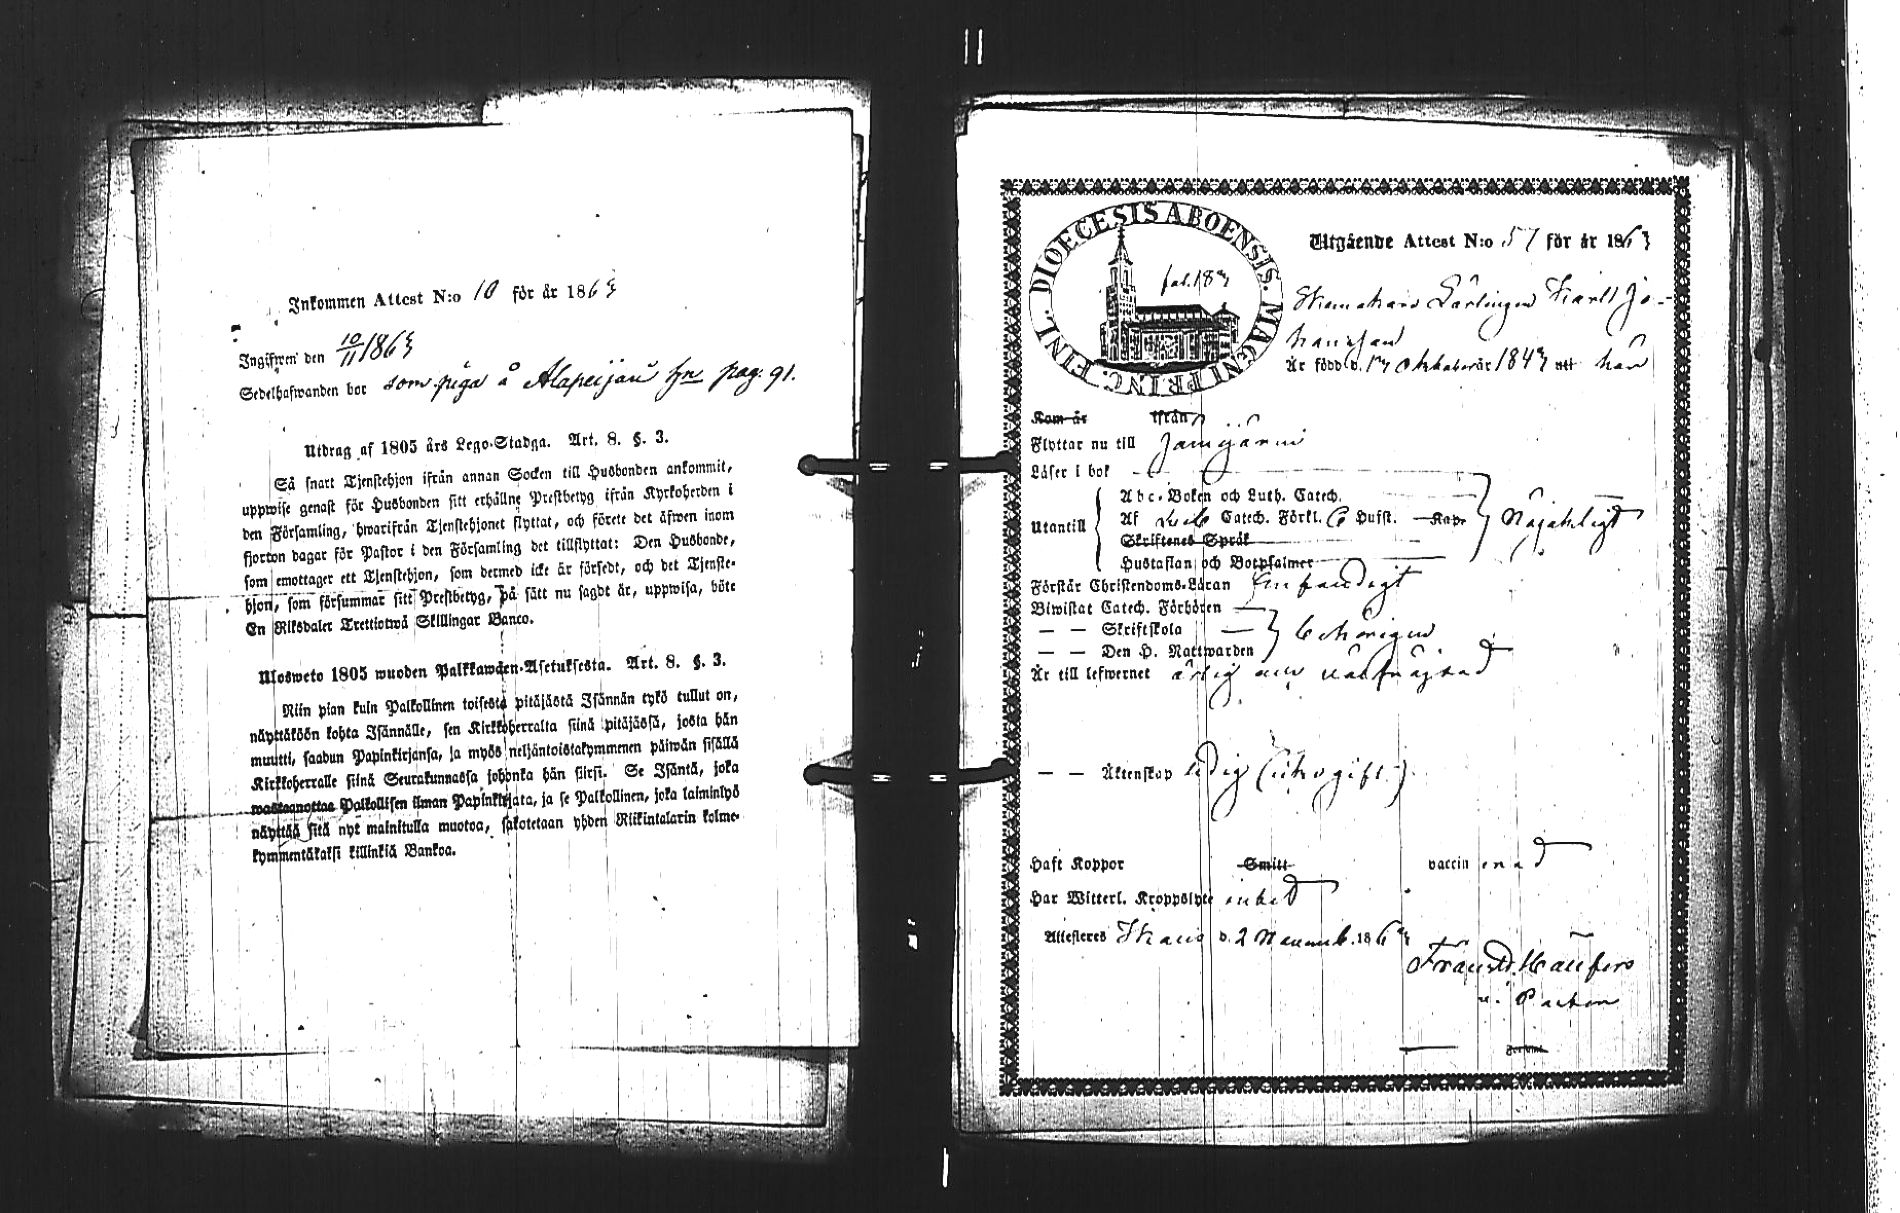 Inkommen Attest N:o 10 för år 1863
Ingifwen den 10/11 1863
Sedelhafwanden bor som piga å Alapeijari hn pag. 91.
Utdrag af 1805 års Lego-Stadga. Art. 8. §. 3.
Så snart Tjenstehjon ifrån annan Socken till Husbonden ankommit,
uppwise genast för Husbonden sitt erhållne Prestbetyg ifrån Kyrkoherden i
den Församling, hwarifrån Tjenstehjonet flyttat, och förete det äfwen inom
fjorton dagar för Pastor i den Församling det tillflyttat: Den Husbonde,
som emottager ett Tjenstehjon, som dermed icke är försedt, och det Tjenste-
hjon, som försummar sitt Prestbetyg, på sätt nu sagdt är, uppwisa, böte
En Riksdaler Trettiotwå Skillingar Banco.
Ulosweto 1805 wuoden Palkkawäen-Asetuksesta. Art. 8. §. 3.
Niin pian kuin Palkollinen toisesta pitäjästä Isännän tykö tullut on,
näyttäköön kohta Isännälle, sen Kirkkoherralta siinä pitäjässä, josta hän
muutti, saadun Papinkirjansa, ja myös neljäntoistakymmenen päiwän sisällä
Kirkkoherralle siinä Seurakunnassa johonka hän siirsi. Se Isäntä, joka
wastaanottaa Palkollisen ilman Papinkirjata, ja se Palkollinen, joka laiminlyö
näyttää sitä nyt mainitulla muotoa, sakotetaan yhden Riikintalarin kolme-
kymmentäkaksi killinkiä Bankoa.
DIOECESIS ABOENSIS. MAGNI PRINC. FINL.
pal. 183
Utgående Attest N:o 57 för år 1863
Skomakare Lärlingen Karl Jo-
hansson
Är född d. 17 Oktober år 1843 utt här
Kom år ifrån
Flyttar nu till Jamijärvi
Läser i bok
Abc-Boken och Luth. Catech.
Utantill Af Catech. Förkl. 6 Hufst. Kap. Nöjaktigt
Skriftenes Språk
Hustaflan och Botpsalmer
Förstår Christendoms-Läran Enfaldigt
Biwistat Catech. Förhören
— — Skriftskola behörigen
— — Den H. Nattwarden
Är till lefwernet ärlig och wälfräjdad
— — Äktenskap ledig (icke gift)
Haft Koppor Smitt vaccinerad
Har Witterl. Kroppslyte intet
Attesteres d. 2 Novemb. 1863
v. Pastor